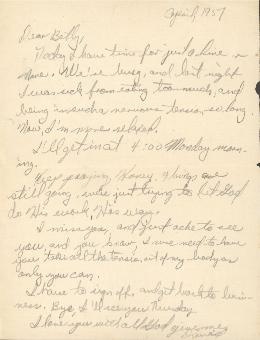 April, 1957
Dear Betty,
Today I have time for just a line or
more. We're busy, and last night
I was sick from eating too much, and
being in such a nervous tension, so long.
Now, I'm more relaxed.
I'll get in at 4:00 Monday morn-
ing.
Keep praying, Honey, things are
still going, we're just trying to let God
do His work, His way.
I miss you, and just ache to see
you, and you know, I need to have
you take all the tension out of my body as
only you can.
I have to sign off, and get back to busi-
ness. Bye, I'll see you Monday
I love you with all God gives me